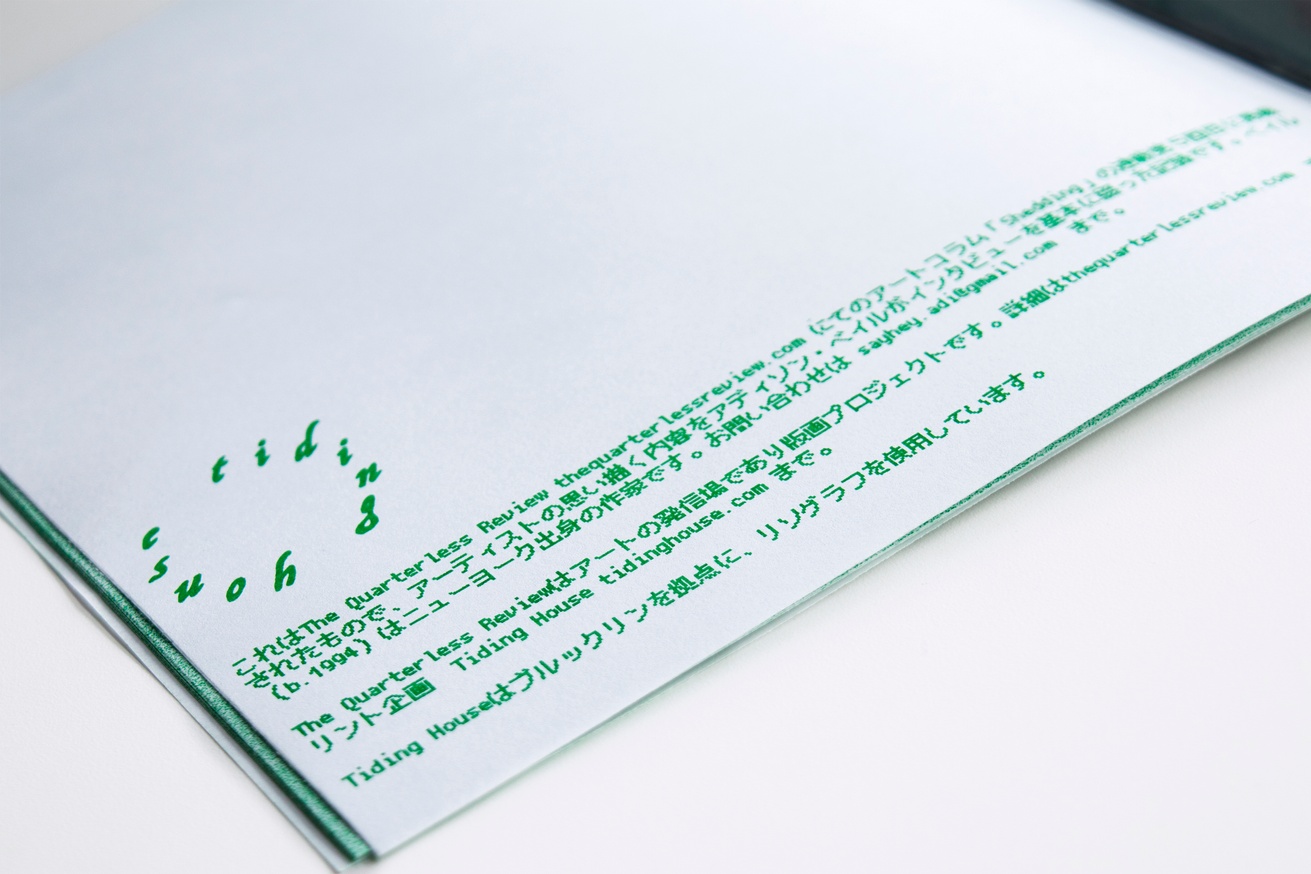 tiding house
これはThe Quarterless Review thequarterlessreview.com にてのアートコラム「Shedding」の連載第5回目に掲載
されたもので、アーティストの思い描く内容をアディソン・ベイルがインタビューを基本に綴った記録です。ベイル
(b.1994) はニューヨーク出身の作家です。お問い合わせは sayhey.adi@gmail.com まで。
The Quarterless Reviewはアートの発信場であり版画プロジェクトです。詳細はthequarterlessreview.com
リント企画 Tiding House tidinghouse.com まで。
Tiding Houseはブルックリンを拠点に、リソグラフを使用しています。